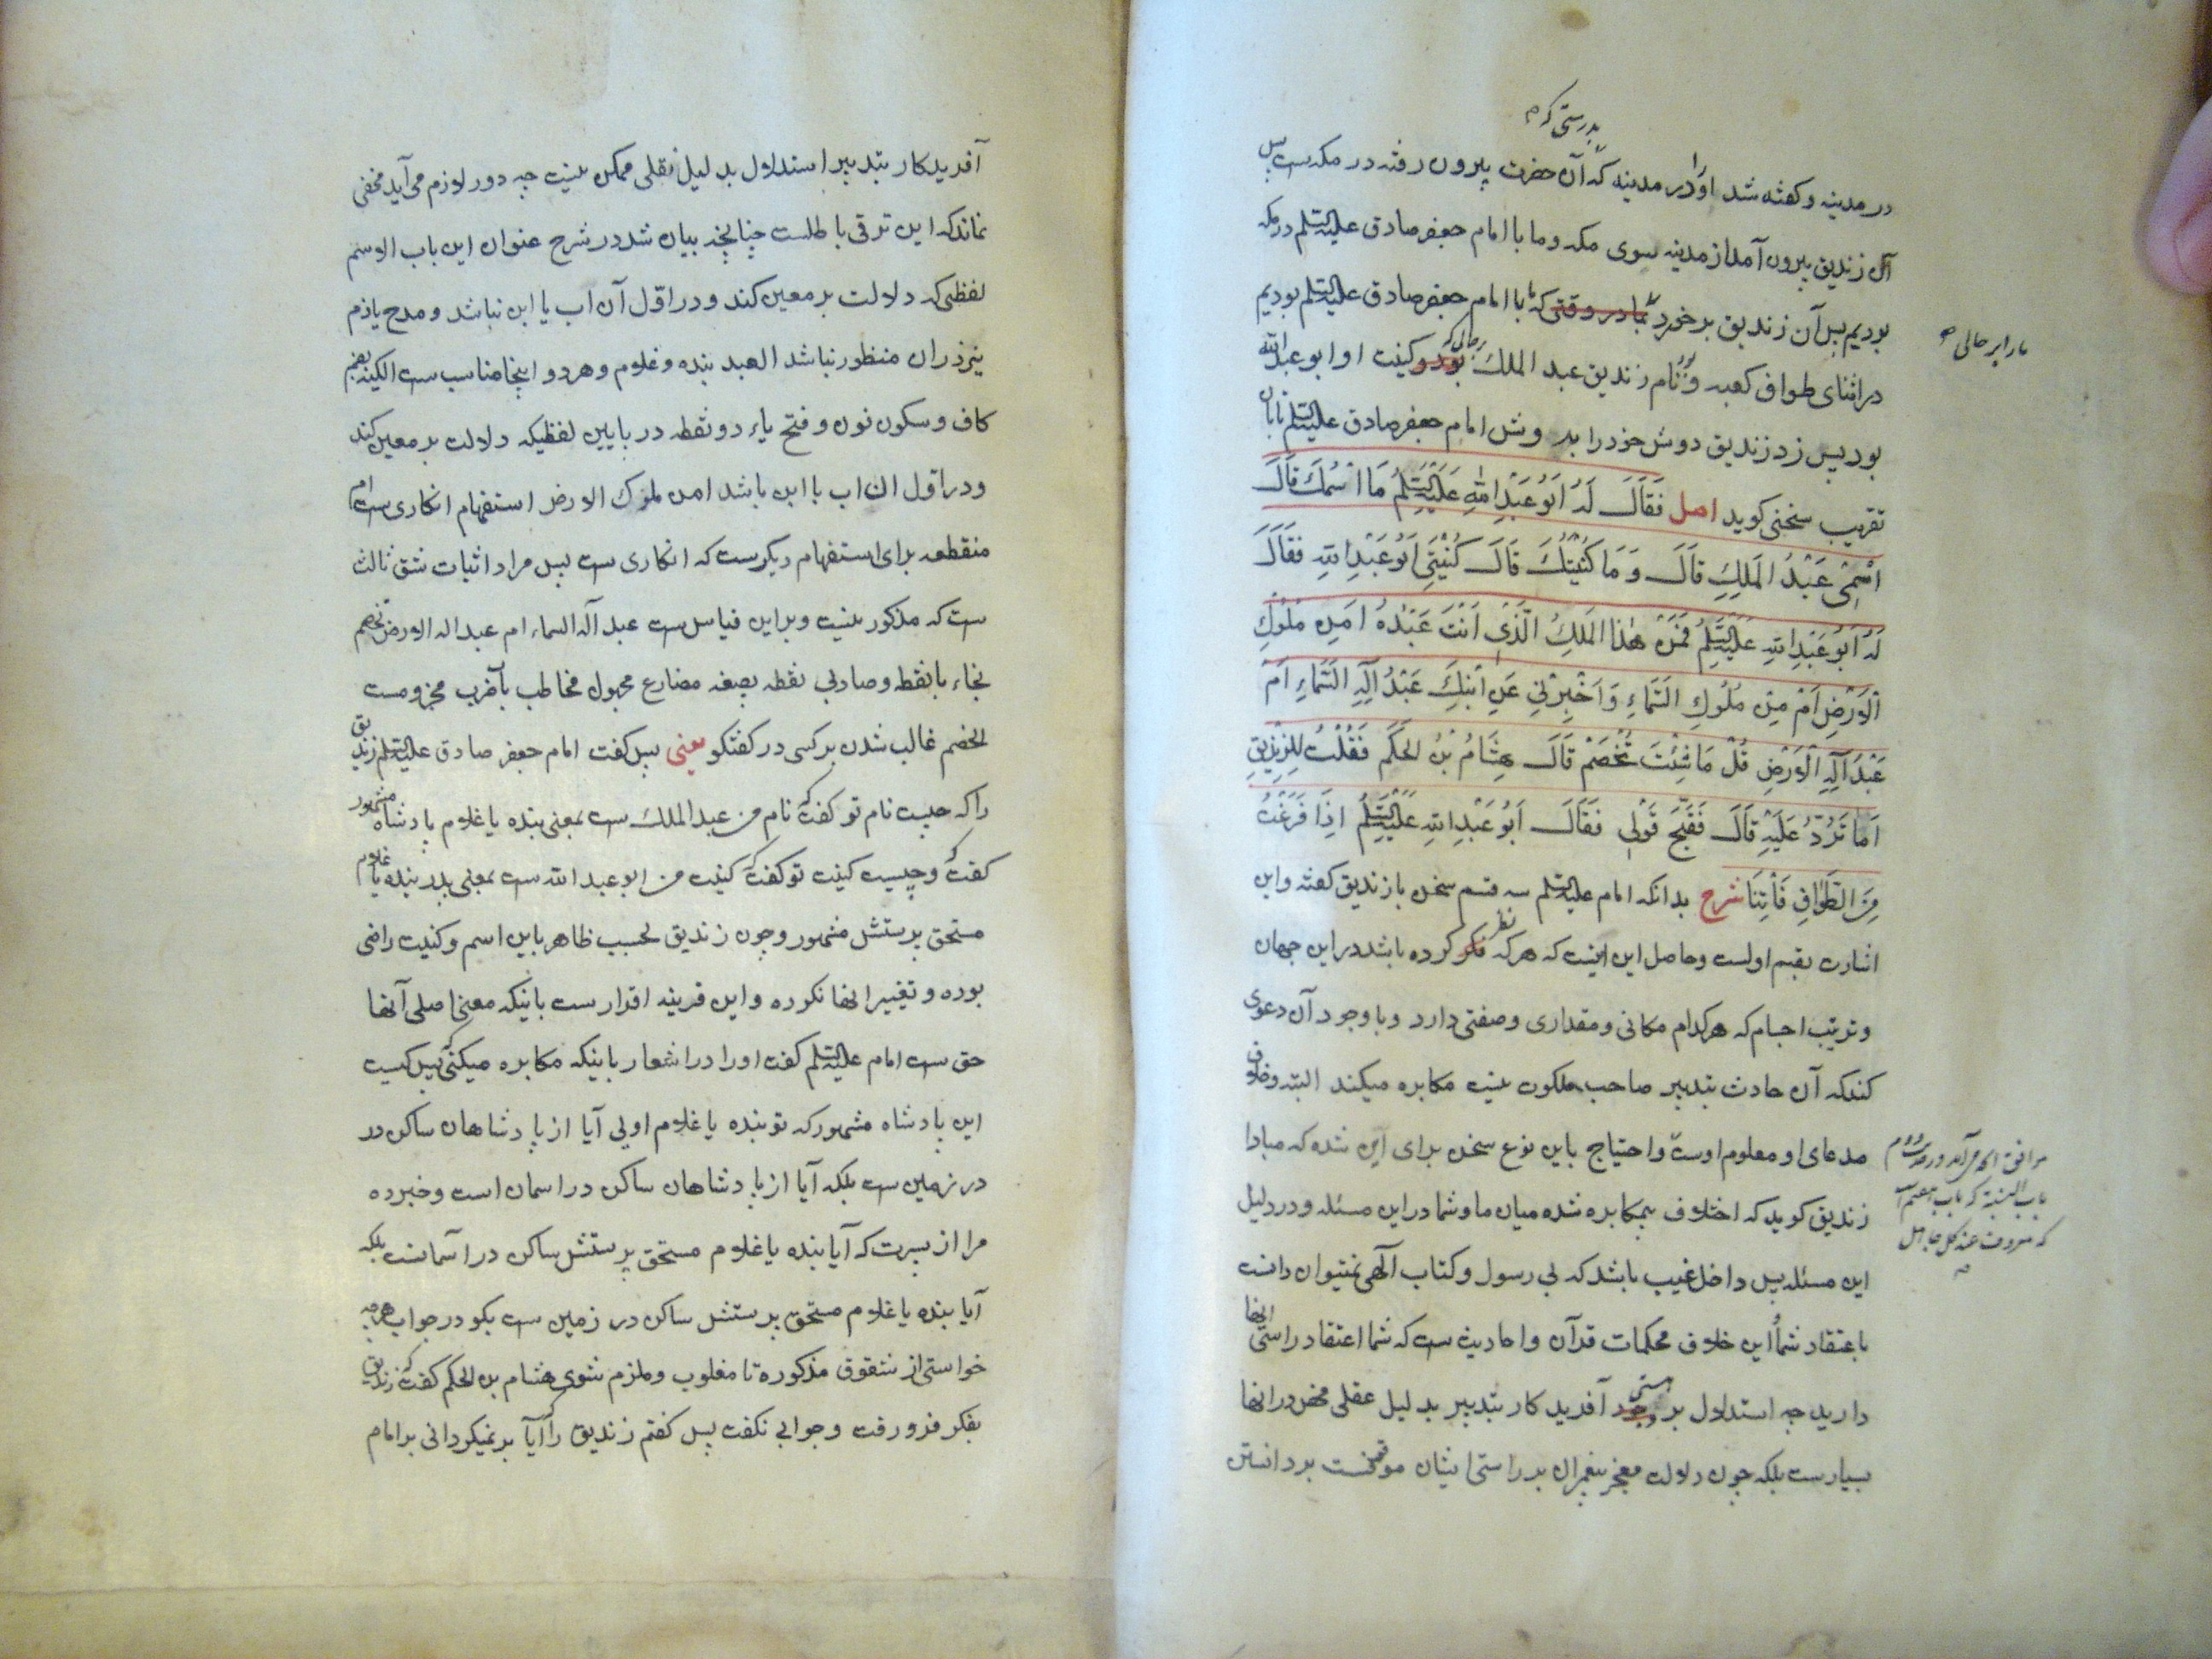 بدرستی که م
در مدینه و کفته شد اورا در مدینه که آن حضرت بیرون رفته در مکه ست پس
آن زندیق بیرون آمد از مدینه سوی مکه و ما با امام جعفر صادق علیه السلم در مکه
بودیم پس آن زندیق برخورد بما در وقتی که ما با امام جعفر صادق علیه السلم بودیم
مارا بر حالی که
در اثنای طواف کعبه و بود نام زندیق عبد الملک بود و کنیت او ابو عبد الله
بود پس زد زندیق دوش خود را بدوش امام جعفر صادق علیه السلم تا بان
تقریب سخنی کوید اصل فَقَالَ لَهُ اَبُو عَبْدِ اللهِ عَلَیْهِ السَّلَمُ مَا اسْمُكَ قَالَ
اسْمِی عَبْدُ المَلِكِ قَالَ وَ مَا كُنْیَتُكَ قَالَ كُنْیَتِی اَبُو عَبْدِ اللهِ فَقَالَ
لَهُ اَبُو عَبْدِ اللهِ عَلَیْهِ السَّلَمُ فَمَنْ هٰذَا المَلِكُ الَّذِی اَنْتَ عَبْدُهُ اَمِنْ مُلُوكِ
الْاَرْضِ اَمْ مِنْ مُلُوكِ السَّمَاءِ وَ اَخْبِرْنِی عَنِ ابْنِكَ عَبْدُ اِلٰهِ السَّمَاءِ اَمْ
عَبْدُ اِلٰهِ الْاَرْضِ قُلْ مَا شِئْتَ تُخْصَمْ قَالَ هِشَامُ بْنُ الحَكَمِ فَقُلْتُ لِلزِّنْدِیقِ
اَمَا تَرُدُّ عَلَیْهِ قَالَ فَقَبَّحَ قَوْلِی فَقَالَ اَبُو عَبْدِ اللهِ عَلَیْهِ السَّلَمُ اِذَا فَرَغْتُ
مِنَ الطَّوَافِ فَأْتِنَا شرح بدانکه امام علیه السلم سه قسم سخن با زندیق کفته و این
اشارت بقسم اولست و حاصل این اینست که هر که نظر فکر کرده باشد در این جهان
و ترتیب اجسام که هر کدام مکانی و مقداری و صفتی دارد و با وجود آن دعوی
کند که آن حادث بتدبیر صاحب ملکوت نیست مکابره میکند البته و خلاف
مدعای او معلوم اوست و احتیاج باین نوع سخن برای این شده که مبادا
زندیق کوید که اختلاف بمکابره شده میان ما و شما در این مسئله و در دلیل
این مسئله پس داخل غیب باشد که بی رسول و کتاب آلهی نمیتوان دانست
باعتقاد شما و این خلاف محکمات قرآن و احادیث ست که شما اعتقاد راستی آنها
دارید چه استدلال بر هستی وجود آفریدکار بتدبیر بدلیل عقلی محض در آنها
بسیار ست بلکه چون دلالت معجز پیغمبران بر راستی ایشان موقوفست بر دانستن
آفریدکار بتدبیر استدلال بدلیل نقلی ممکن نیست چه دور لازم می آید مخفی
نماند که این ترقی باطلست چنانچه بیان شد در شرح عنوان این باب الاسم
لفظی که دلالت بر معین کند و در اوّل آن اب یا ابن نباشد و مدح یا ذم
نیز در ان منظور نباشد العبد بنده و غلام و هر دو اینجا مناسب ست الکنیه بضم
کاف و سکون نون و فتح یاء دو نقطه در پایین لفظیکه دلالت بر معین کند
و در اوّل ان اب یا ابن باشد امن ملوک الارض استفهام انکاری ست ام
منقطعه برای استفهام دیکرست که انکاری ست پس مراد اثبات شق ثالث
ست که مذکور نیست و بر این قیاس ست عبد آله السماء ام عبد اله الارض تخصم
بخاء با نقطه و صاد بی نقطه بصیغه مضارع مجهول مخاطب با آخر ب مجزومست
الخصم غالب شدن بر کسی در کفتکو یعنی پس کفت امام جعفر صادق علیه السلم زندیق
را که چیست نام تو کفت که نام من عبد الملک ست بمعنی بنده یا غلام پادشاه مشهور
کفت که و چیست کنیت تو کفت که کنیت من ابو عبد الله ست بمعنی پدر بنده یا غلام
مستحق پرستش مشهور و چون زندیق بحسب ظاهر باین اسم و کنیت راضی
بوده و تغییر انها نکرده و این قرینه اقرار ست باینکه معنی اصلی آنها
حق ست امام علیه السلم کفت او را در اشعار باینکه مکابره میکنی که پس کیست
این پادشاه مشهور که تو بنده یا غلام اویی آیا از پادشاهان ساکن در
در زمین ست بلکه آیا از پادشاهان ساکن در اسمان است و خبر ده
مرا از پسرت که آیا بنده یا غلام مستحق پرستش ساکن در آسمانست بلکه
آیا بنده یا غلام مستحق پرستش ساکن در زمین ست بکو در جواب هر چه
خواستی از شقوق مذکوره تا مغلوب و ملزم شوی هشام بن الحکم کفت که زندیق
بفکر فرو رفت و جوابی نکفت پس کفتم زندیق را که آیا بر نمیکردانی بر امام